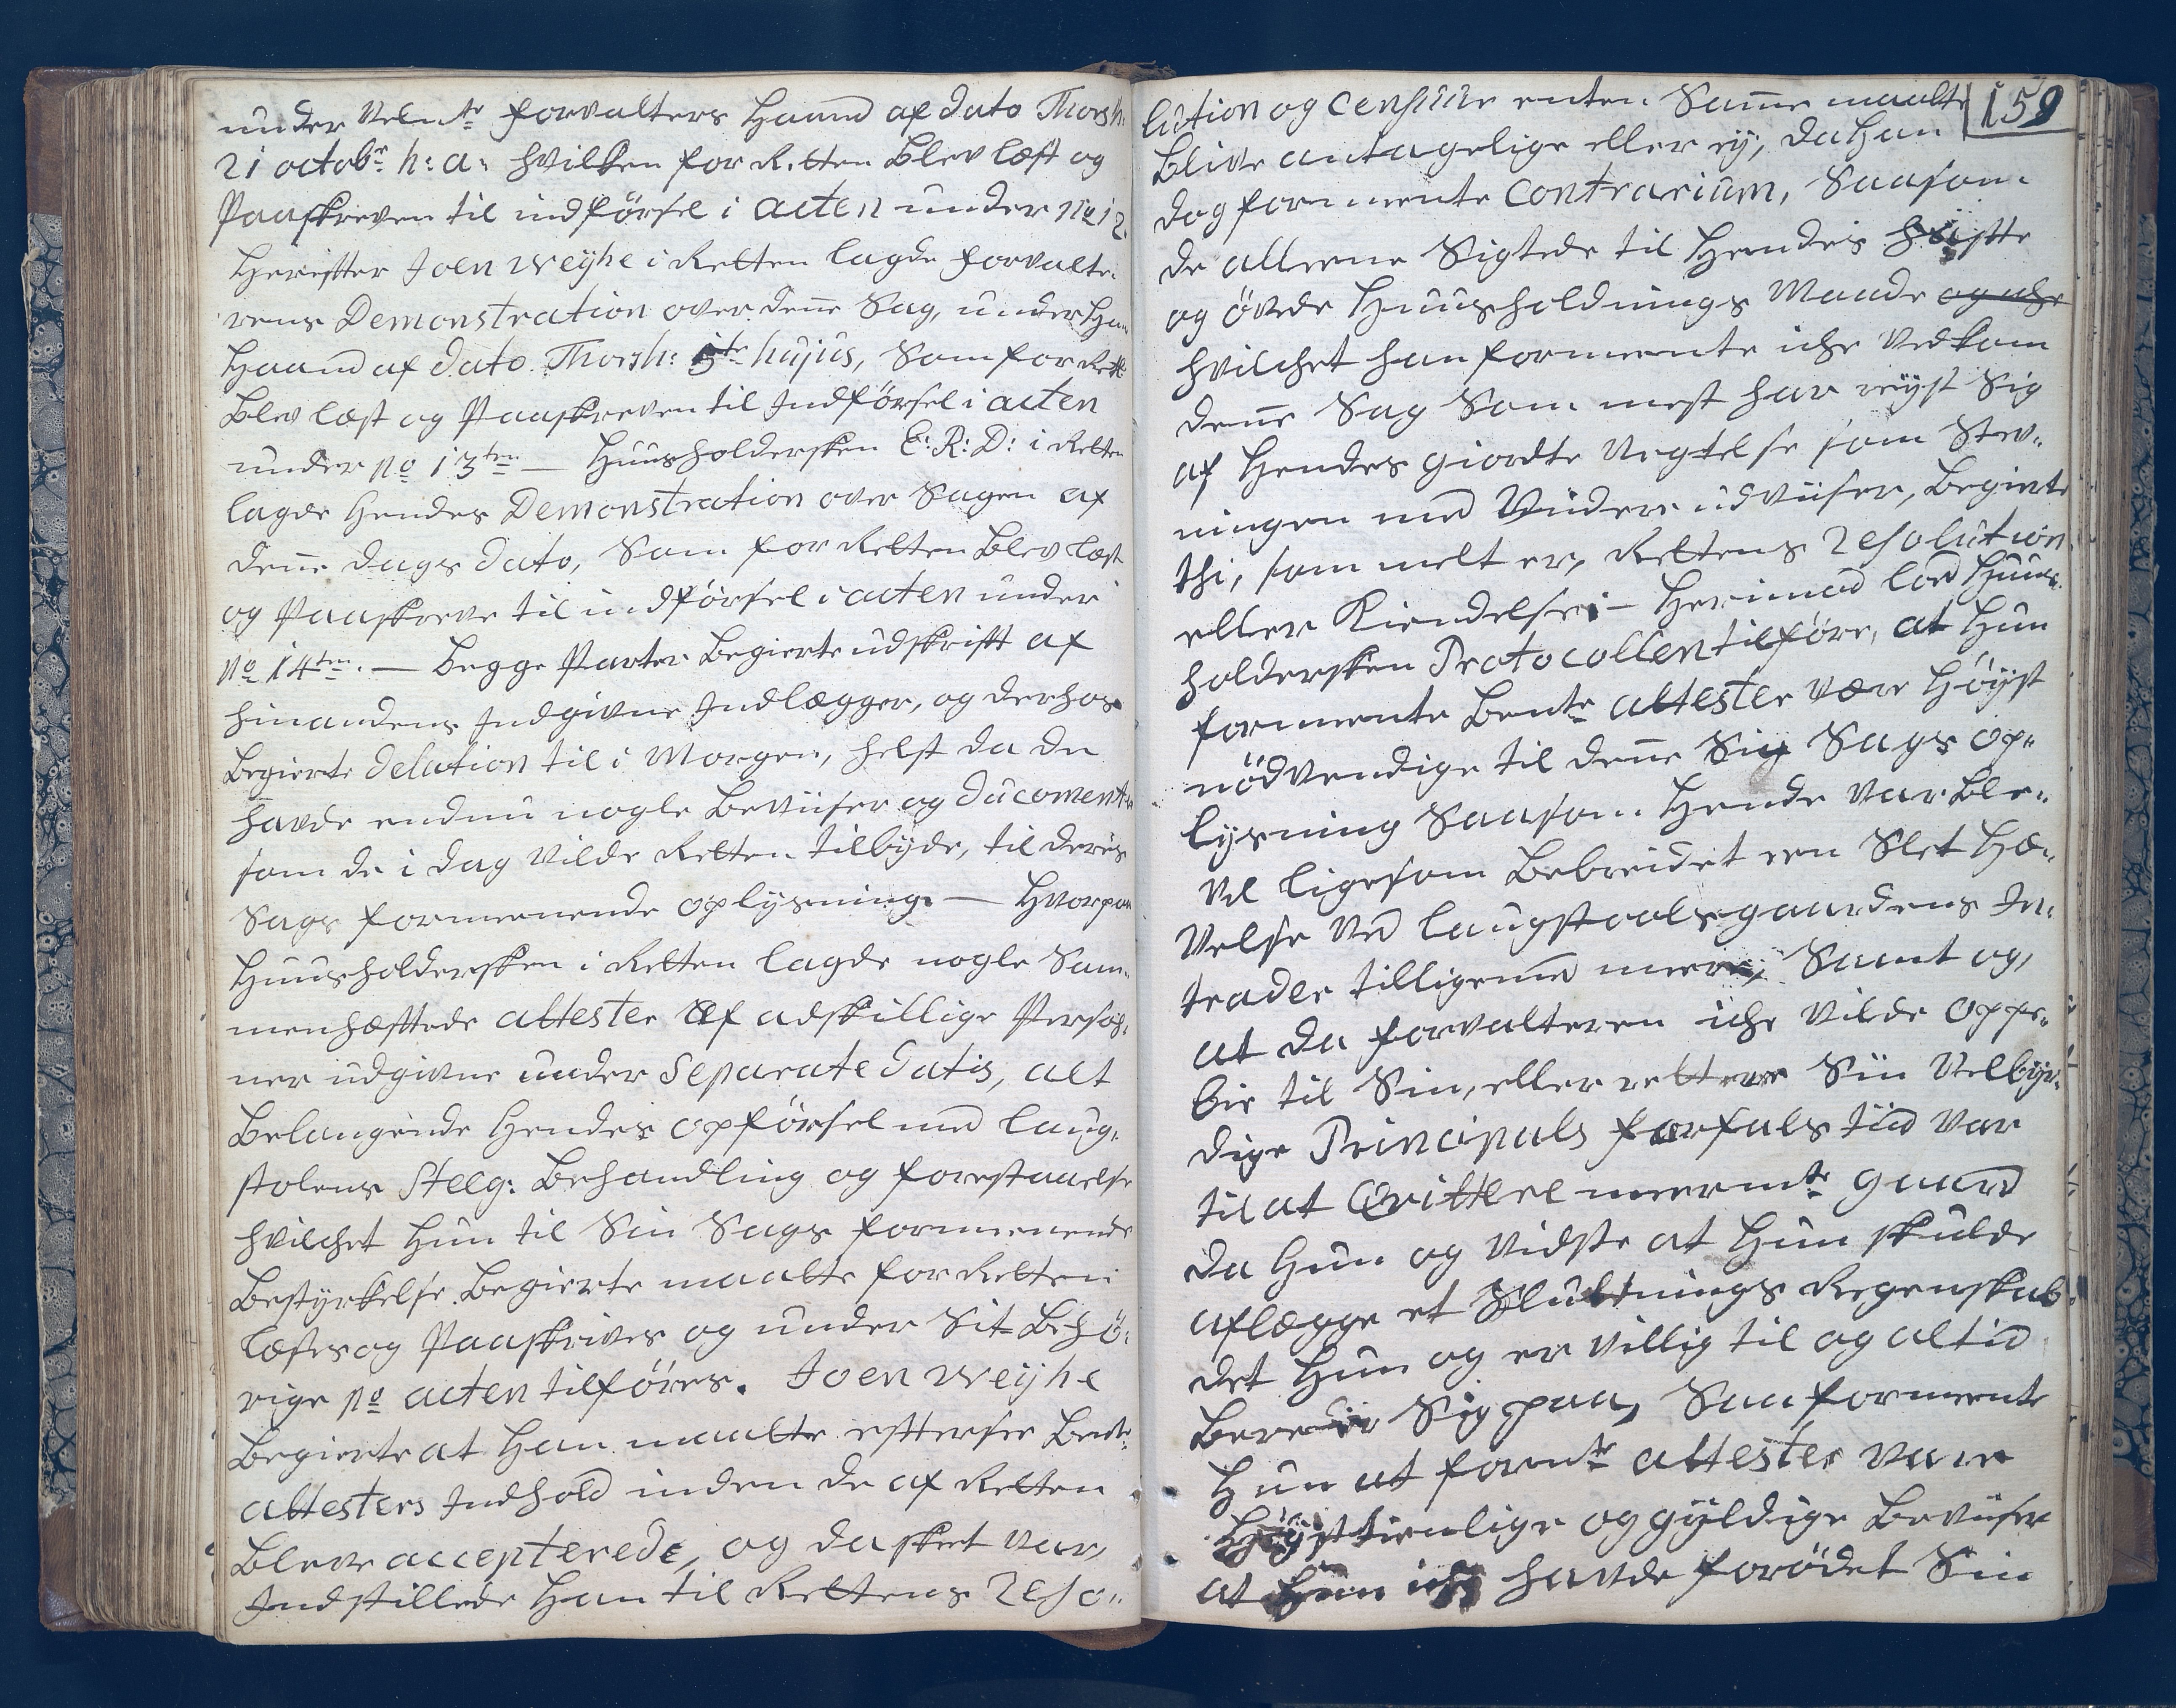 under Velbte forvalters Haand af dato Thorsh:
21 octobr: h: a: hvilken for Retten blev læst og
Paaskreven til indførsel i acten under No 12
Herefter Joen Weyhe i Retten lagde forvalte-
rens Demonstration over denne Sag, under Hans
Haand af dato Thorsh: 5te hujus, som for Rett:
blev læst og Paaskreven til Indførsel i acten
under No 13ten — Huusholdersken E: R: D: i Retten
lagde Hendes Demonstration over Sagen af
denne dags dato, som for Retten blev læst
og Paaskreve til indførsel i acten under
No 14ten. — Begge Parter Begierte udskrift af
hinandens Indgivne Indlægger, og derhos
begierte delation til i Morgen, helst da de
havde endnu nogle beviiser og ducomenter
som de i dag vilde Retten tilbyde, til deris
Sags formeenende oplysning. — Hvorpaa
Huusholdersken i Retten lagde nogle Sam-
menhæftede attester af adskillige Persoh-
ner udgivne under Separate datis, alt
belangende Hendes opførsel med laug-
stolens Steeg: behandling og forestaaelse
hvilchet Hun til Sin Sags formenende
bestyrkelse begierte maatte for Retten
læses og Paaskrives og under Sit behø-
rige No acten tilføres. Joen Weyhe
begierte at Han maatte efftersee bente
attesters Indhold inden de af Retten
bleve accepterede, og da skeet var,
Indstillede Han til Rettens Reso-
159
lution og censure enten Samme maatte
blive antagelige eller ej, da Han
dog formente contrarium, Saasom
de alleene Sigtede til Hendes
og øvede Huusholdnings Maade og iche
hvilchet han formeente iche vedkom
denne Sag som mest har reyst Sig
af Hendes giordte vegtelse som Stev-
ningen med viidere udviiser, begierte
thi, som melt er, Rettens Resolution
eller Kiendelse; — Herimod lod Huus-
holdersken Protocollen tilføre, at Hun
formeente bente attester være Høyst
nødvendige til denne Sig Sags op-
lysning Saasom Hende var ble-
vel ligesom bebreidet een Slet Hæ-
velse ved laugstoolsgaardens In-
trader tilligemed meere, Samt og,
at da forvalteren iche vilde oppe-
bie til Sin, eller rettere Sin Velbyr-
dige Principals forfals tiid var
til at qvittere meermte gaard
da Hun og vidste at Hun skulde
aflægge et Sluttnings Regenskab
det Hun og er villig til og altid
Sig paa, Saa formeente
Hun at formte attester vare
Høysttienlige og gyldige beviiser
at Hun iche havde forødet Sin